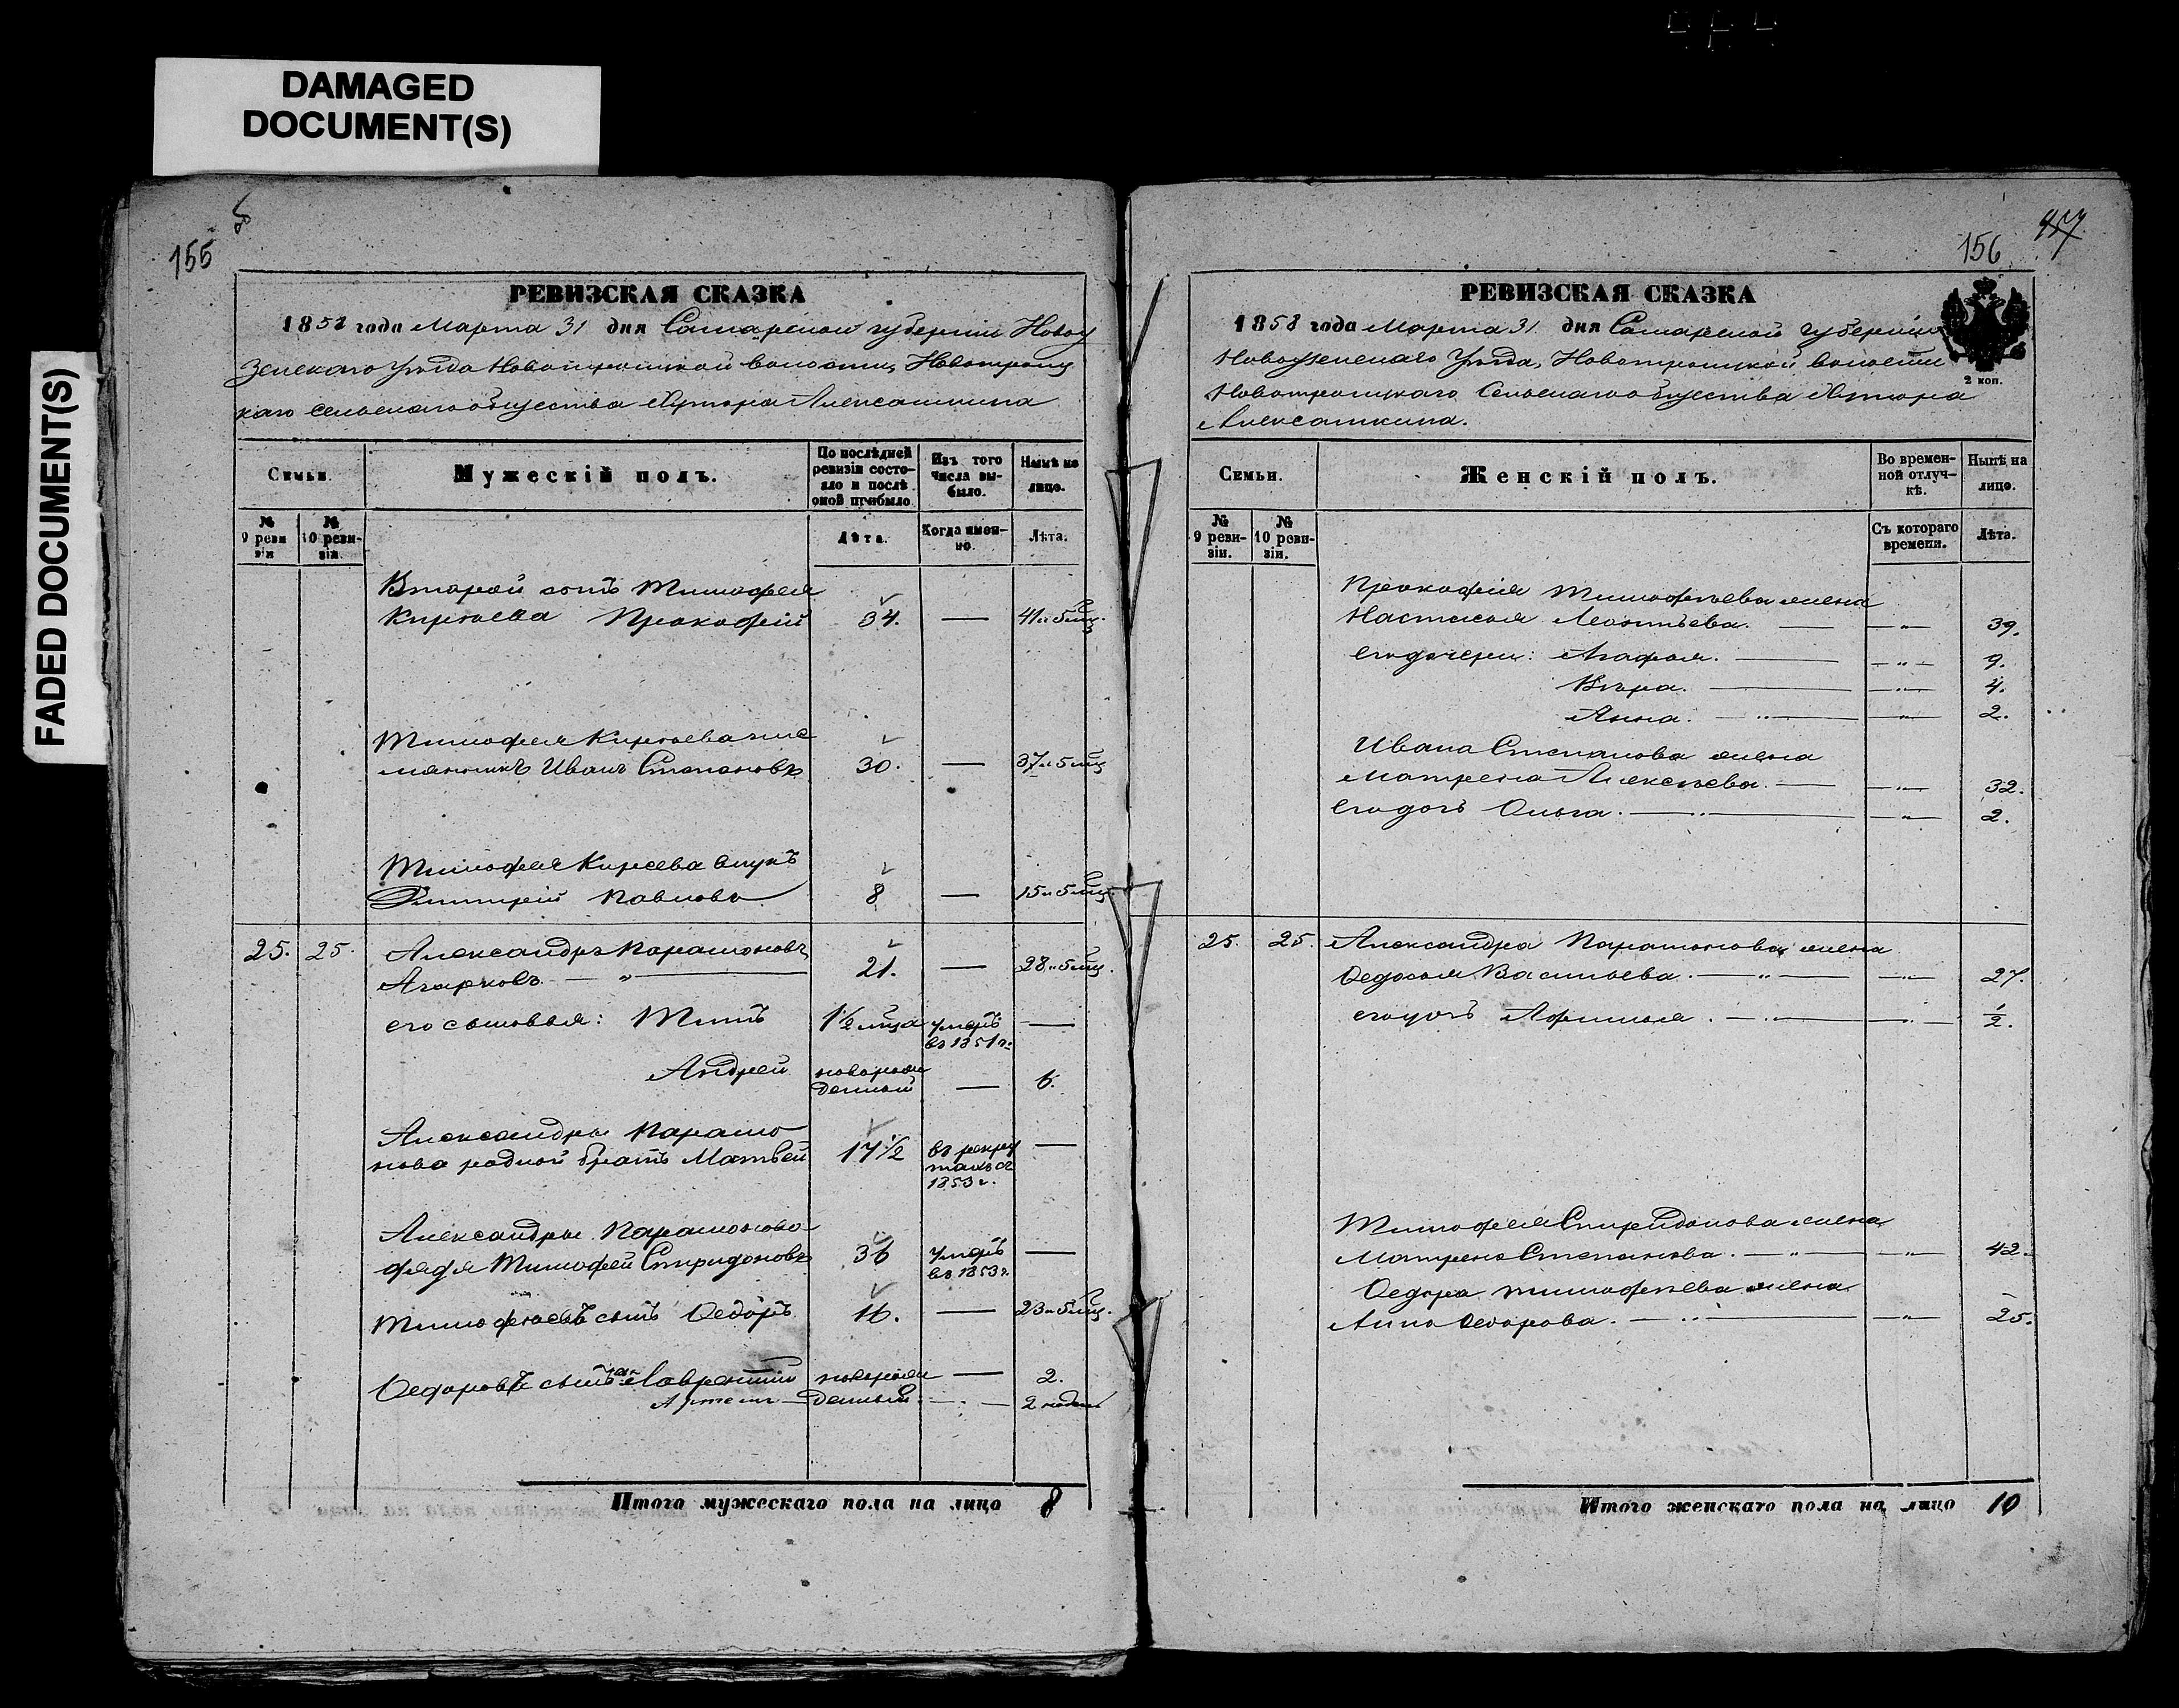 DAMAGED
DOCUMENT(S)
FADED DOCUMENT(S)
155
РЕВИЗСКАЯ СКАЗКА
1858 года Марта 31 дня Самарской губернии Новоу
зенскаго Уѣзда Новотроицкой волости, Новотроиц
каго сельскаго общества хутора Алексашкина
Семьи.
Мужескій полъ.
По послѣдней ревизіи состояло и послѣ оной прибыло
Изъ того числа выбыло.
Нынѣ на лицо.
№ 9 ревизіи
№ 10 ревизіи.
Лѣта.
Когда именно.
Лѣта.
Второй сынъ Тимофея
Кирѣева Прокофій 34. — 41 и 5 мц.
Тимофея Кирѣева пле
мянникъ Иванъ Степановъ 30. — 37 и 5 мц
Тимофея Кирѣева внукъ
Дмитрій Павловъ 8 — 15 и 5 мц.
25. 25. Александръ Парамоновъ
Агарковъ — " — 21. — 28 и 5 мц.
его сыновья: Титъ 1½ мца умеръ —
въ 1851 г.
Андрей новорож — 6.
денный
Александры Парамо
нова родной братъ Матвей 17½ въ рекру —
тахъ съ
1853 г.
Александры Парамонова
дядя Тимофей Спиридоновъ 36 умеръ —
въ 1853 г.
Тимофеевъ сынъ Ѳедоръ 16. — 23 и 5 мц.
Ѳедоровы сыновья Лаврентій новорож — 2.
Артемъ — денный — 2 недели
Итого мужескаго пола на лицо 8
156
РЕВИЗСКАЯ СКАЗКА
1858 года Марта 31 дня Самарской губерніи
Новоузенскаго Уѣзда, Новотроицкой волости
Новотроицкаго Сельскаго общества хутора
Алексашкина.
2 коп.
Семьи.
Женскій полъ.
Во временной отлучкѣ.
Нынѣ на лицо.
№ 9 ревизіи.
№ 10 ревизіи.
Съ котораго времени.
Лѣта.
Прокофія Тимофѣева жена
Настасья Леонтьева. — — " — 39.
его дочери: Агафья. — — " — 9.
Вѣра. — — " — 4.
Анна. — " — — " — 2.
Ивана Степанова жена
Матрена Алексѣева. — — " — 32.
его дочь Ольга. — " — — " — 2.
25. 25. Александра Парамонова жена
Ѳедосья Васильева. — " — — " — 27.
его дочь Афимья. — " — — " — ½.
Тимофея Спиридонова жена
Матрена Степанова. — " — — " — 42.
Ѳедора Тимофѣева жена
Анна Ѳедорова. — " — — " — 25.
Итого женскаго пола на лицо 10